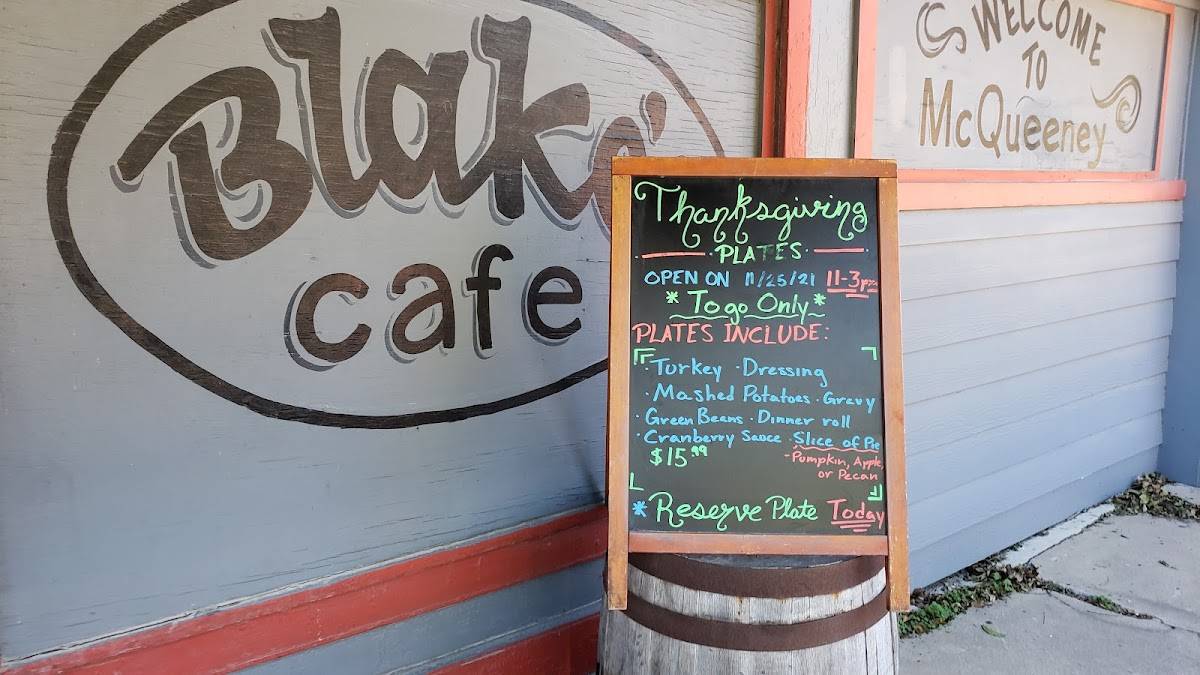 Blake's
cafe
WELCOME
TO
McQueeney
Thanksgiving
PLATES
OPEN ON 11/25/21 11-3pm
* To go Only *
PLATES INCLUDE:
· Turkey · Dressing
· Mashed Potatoes · Gravy
· Green Beans · Dinner roll
· Cranberry Sauce · Slice of Pie
$15.99
- Pumpkin, Apple,
or Pecan
* Reserve Plate Today